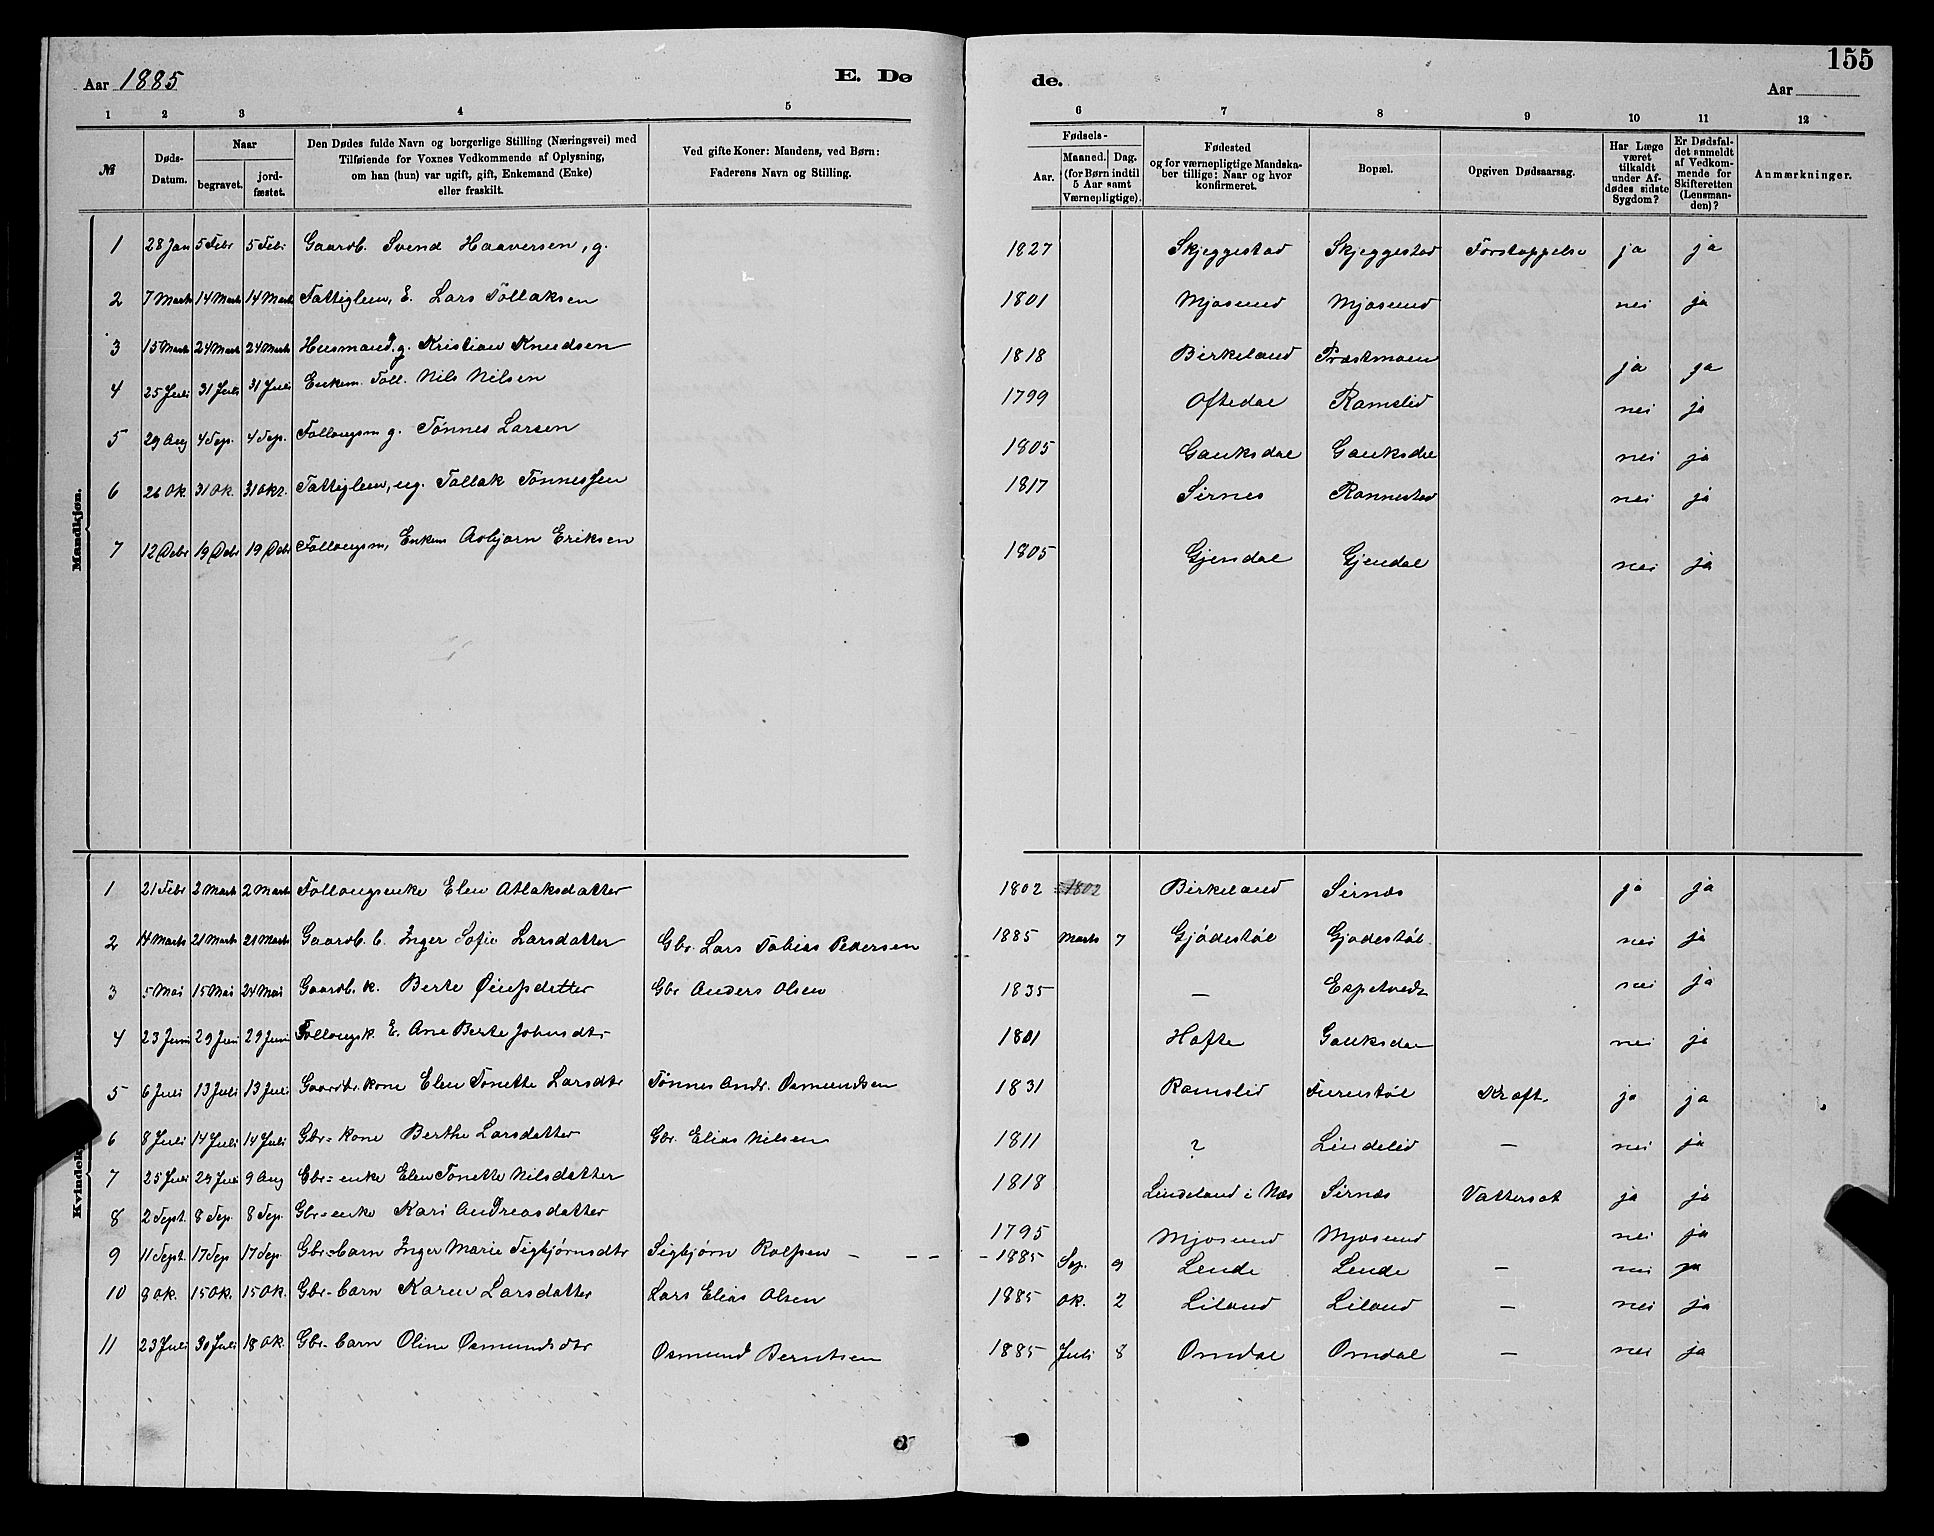 155
Aar 1885 E. Dø de. Aar
1 2 3 4 5 6 7 8 9 10 11 12
№
Døds-Datum.
Naar
begravet.
jord-fæstet.
Den Dødes fulde Navn og borgerlige Stilling (Næringsvei) med
Tilføiende for Voxnes Vedkommende af Oplysning,
om han (hun) var ugift, gift, Enkemand (Enke)
eller fraskilt.
Ved gifte Koner: Mandens, ved Børn:
Faderens Navn og Stilling.
Fødsels-
Aar.
Maaned. Dag.
(for Børn indtil
5 Aar samt
Værnepligtige).
Fødested
og for værnepligtige Mandska-
ber tillige: Naar og hvor
konfirmeret.
Bopæl.
Opgiven Dødsaarsag.
Har Læge
været
tilkaldt
under Af-
dødes sidste
Sygdom?
Er Dødsfal-
det anmeldt
af Vedkom-
mende for
Skifteretten
(Lensman-
den)?
Anmærkninger.
Mandkjøn.
1 28 Jan 5 Febr 5 Febr Gaardb. Svend Haaversen, g. 1827 Skjeggestad Skjeggestad Forstoppelse ja ja
2 7 Marts 14 Marts 14 Marts Fattiglem, E. Lars Tollaksen 1801 Mjosund Mjosund nei ja
3 15 Marts 24 Marts 24 Marts Husmand, g. Kristian Knudsen 1818 Birkeland Præstmoen ja ja
4 25 Juli 31 Juli 31 Juli Enkem. Foll. Nils Nilsen 1799 Oftedal Ramslid nei ja
5 29 Aug 4 Sep. 4 Sep. Follougsm g. Tønnes Larsen 1805 Gauksdal Gauksdal nei ja
6 26 Ok. 31 Ok. 31 Okt. Fattiglem, ug. Tollak Tønnessen 1817 Sirnes Rannestad nei ja
7 12 Debr 19 Debr 19 Debr Follougsm, Enkem Asbjørn Eriksen 1805 Gjendal Gjendal nei ja
1 21 Febr 2 Marts 2 Marts Follougsenke Elen Atlaksdatter 1802 1802 Birkeland Sirnæs ja ja
2 14 Marts 21 Marts 21 Marts Gaardb. b. Inger Sofie Larsdatter Gbr. Lars Tobias Pedersen 1885 Marts 7 Gjødestøl Gjødestøl nei ja
3 5 Mai 15 Mai 24 Mai Gaardb. k. Berte Øiesdatter Gbr Anders Olsen 1835 — Espetvedt nei ja
4 23 Juni 29 Juni 29 Juni Follougsk. E. Ane Berte Johnsdtr 1801 Hafte Gauksdal nei ja
5 6 Juli 13 Juli 13 Juli Gaardbr. kone Elen Tonette Larsdtr Tønnes Andr. Osmundsen 1831 Ramslid Furestøl Kræft. ja ja
6 8 Juli 14 Juli 14 Juli Gbr= kone Berthe Larsdatter Gbr. Elias Nilsen 1811 ? Lindelid — nei ja
7 25 Juli 29 Juli 9 Aug Gbr= enke Elen Tonette Nilsdatter 1818 Lindeland i Næs Sirnæs Vattersot ja ja
8 2 Sept. 8 Sep. 8 Sep. Gbr= enke Kari Andreasdatter 1795 Mjosund Mjosund nei ja
9 11 Sept. 17 Sep 17 Sep. Gbr= barn Inger Marie Sigbjørnsdtr Sigbjørn Rolfsen — — — 1885 Sep. 9 Lende Lende — nei ja
10 8 Ok. 15 Ok. 15 Ok. Gbr= barn Karen Larsdatter Lars Elias Olsen 1885 Ok. 2 Liland Liland — nei ja
11 23 Juli 30 Juli 18 Ok. Gbr= barn Oline Osmundsdtr Osmund Berntsen 1885 Juli 8 Omdal Omdal — nei ja
Kvindek